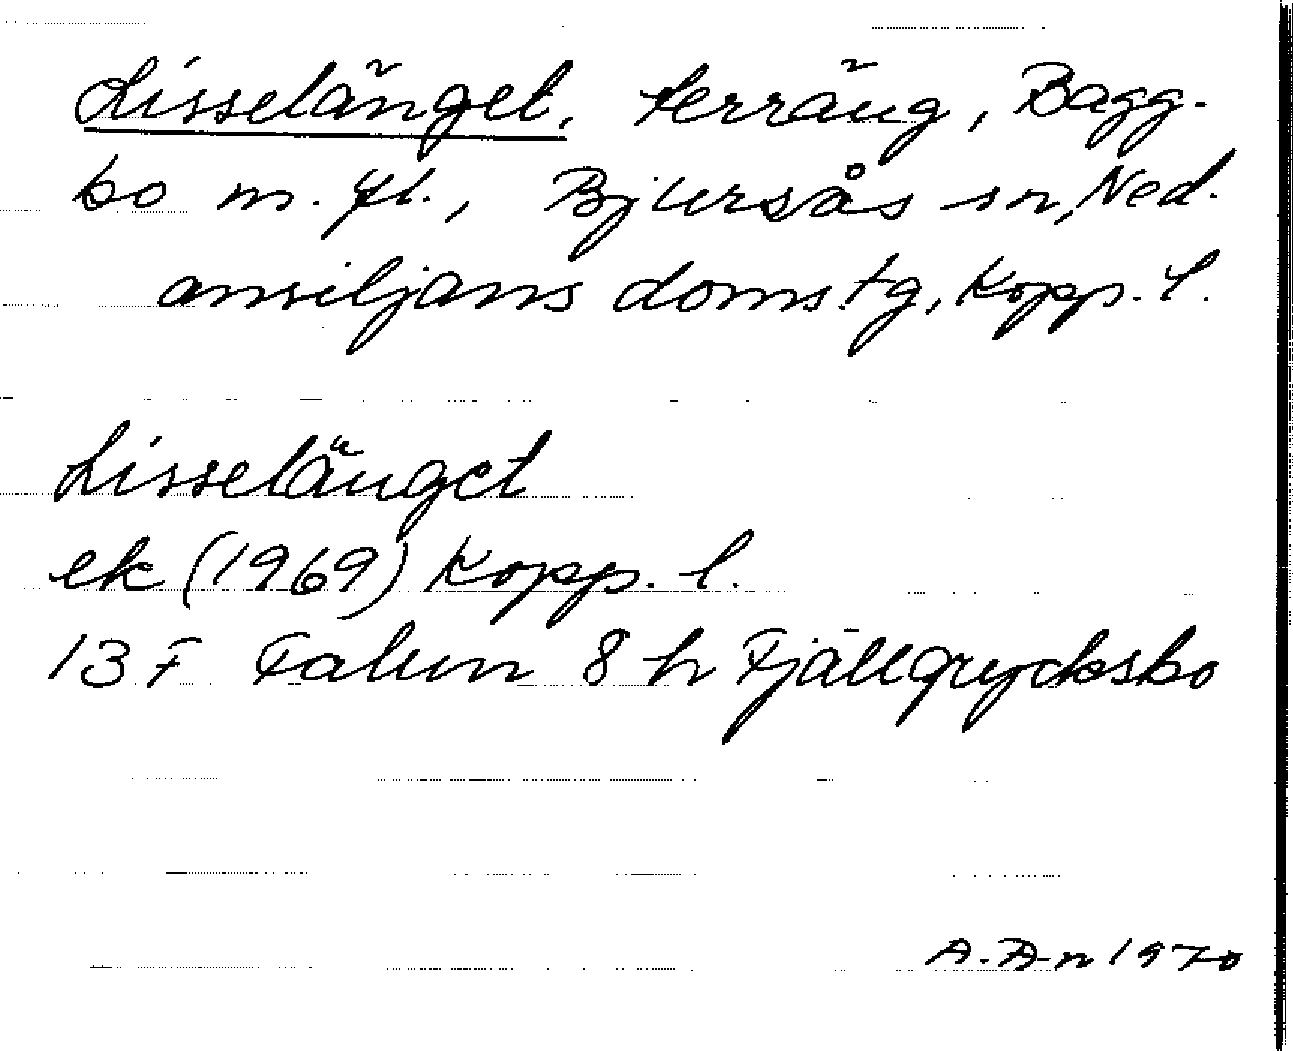 Lisselänget, terräng, Bagg-
bo m. fl., Bjursås sn, Ned.
ansiljans domstg, Kopp. l.
Lisselänget
ek (1969) Kopp. l.
13 F Falun 8 h Fjällgrycksbo
A. A-n 1970